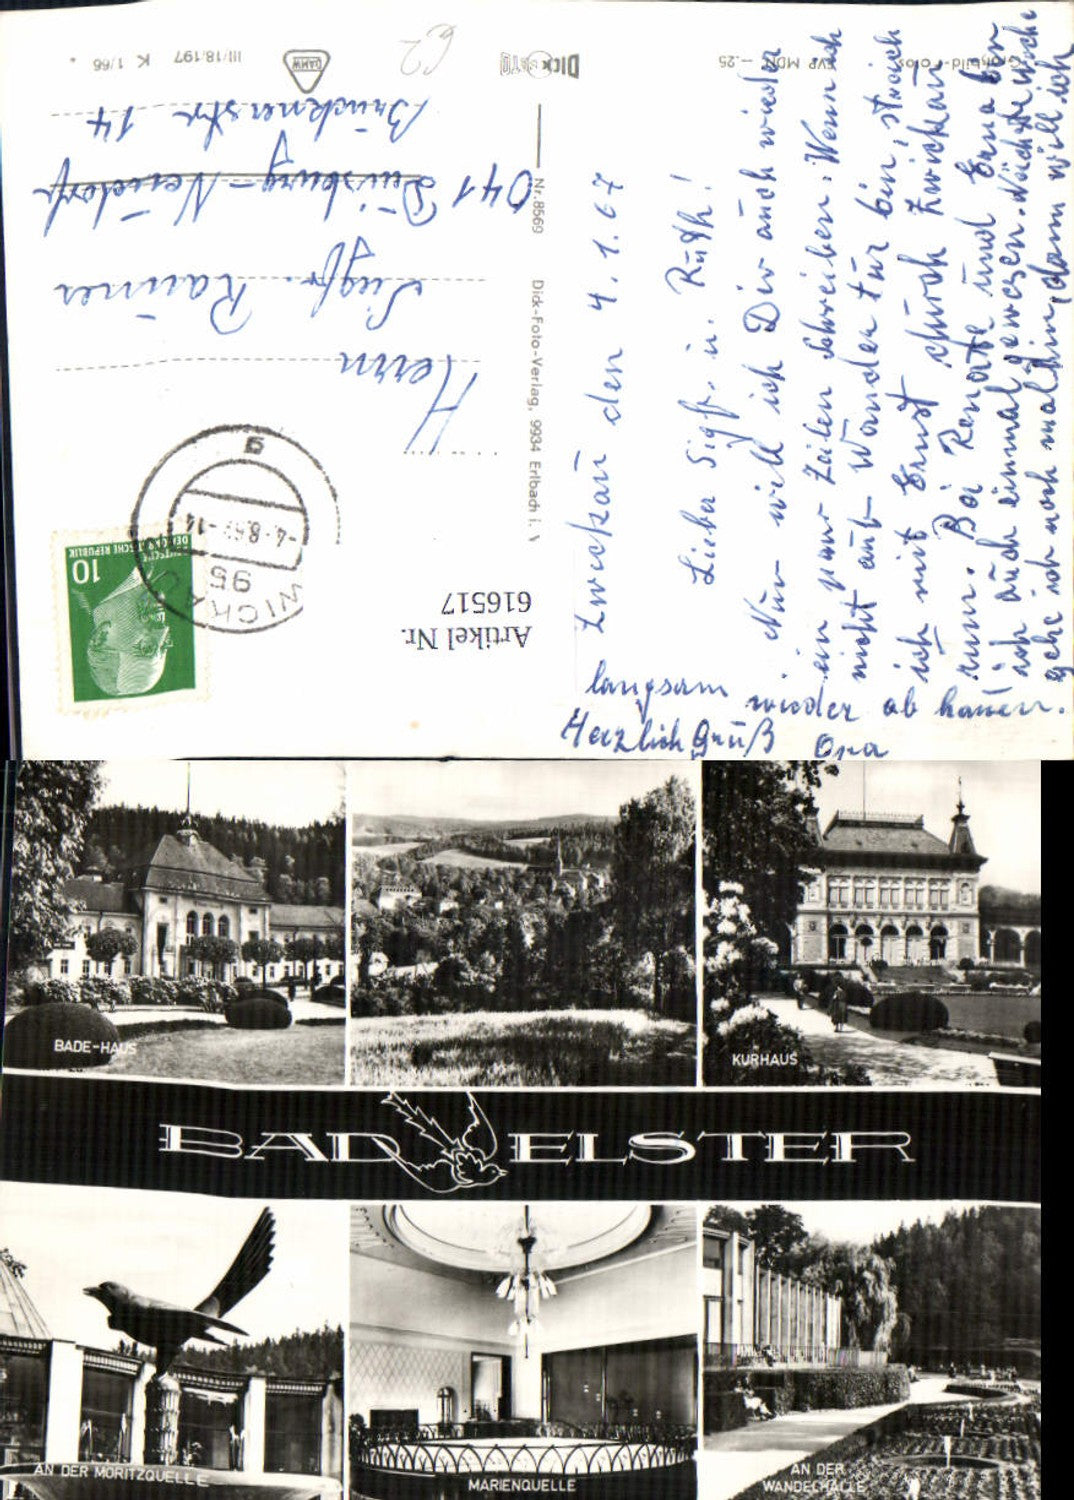 Zwickau den 4.1.67
Lieber Sigfr. u. Ruth!
Nun will ich Dir auch wieder
ein paar Zeilen schreiben. Wenn ich
nicht auf Wander tur bin, streich
ich mit Ernst durch Zwickau
rum. Bei Renate und Erna bin
ich auch einmal gewesen. Nächste Woche
gehe ich noch mal hin, dann will ich
langsam wieder ab hauen.
Herzlich Gruß Opa
Nr. 8569 Dick-Foto-Verlag, 9934 Erlbach i. V
Großbild-Fotos EVP MDN -.25
DICK FOTO
62
DAMW
III/18/197 K 1/66
Herrn
Siegfr. Rainer
041 Duisburg-Neudorf
Brücknerstr 14
ZWICKAU
95
-4.-8.67-14
a
10
DEUTSCHE
DEMOKRATISCHE REPUBLIK
Artikel Nr.
616517
BADE-HAUS
KURHAUS
BAD ELSTER
AN DER MORITZQUELLE
MARIENQUELLE
AN DER
WANDELHALLE